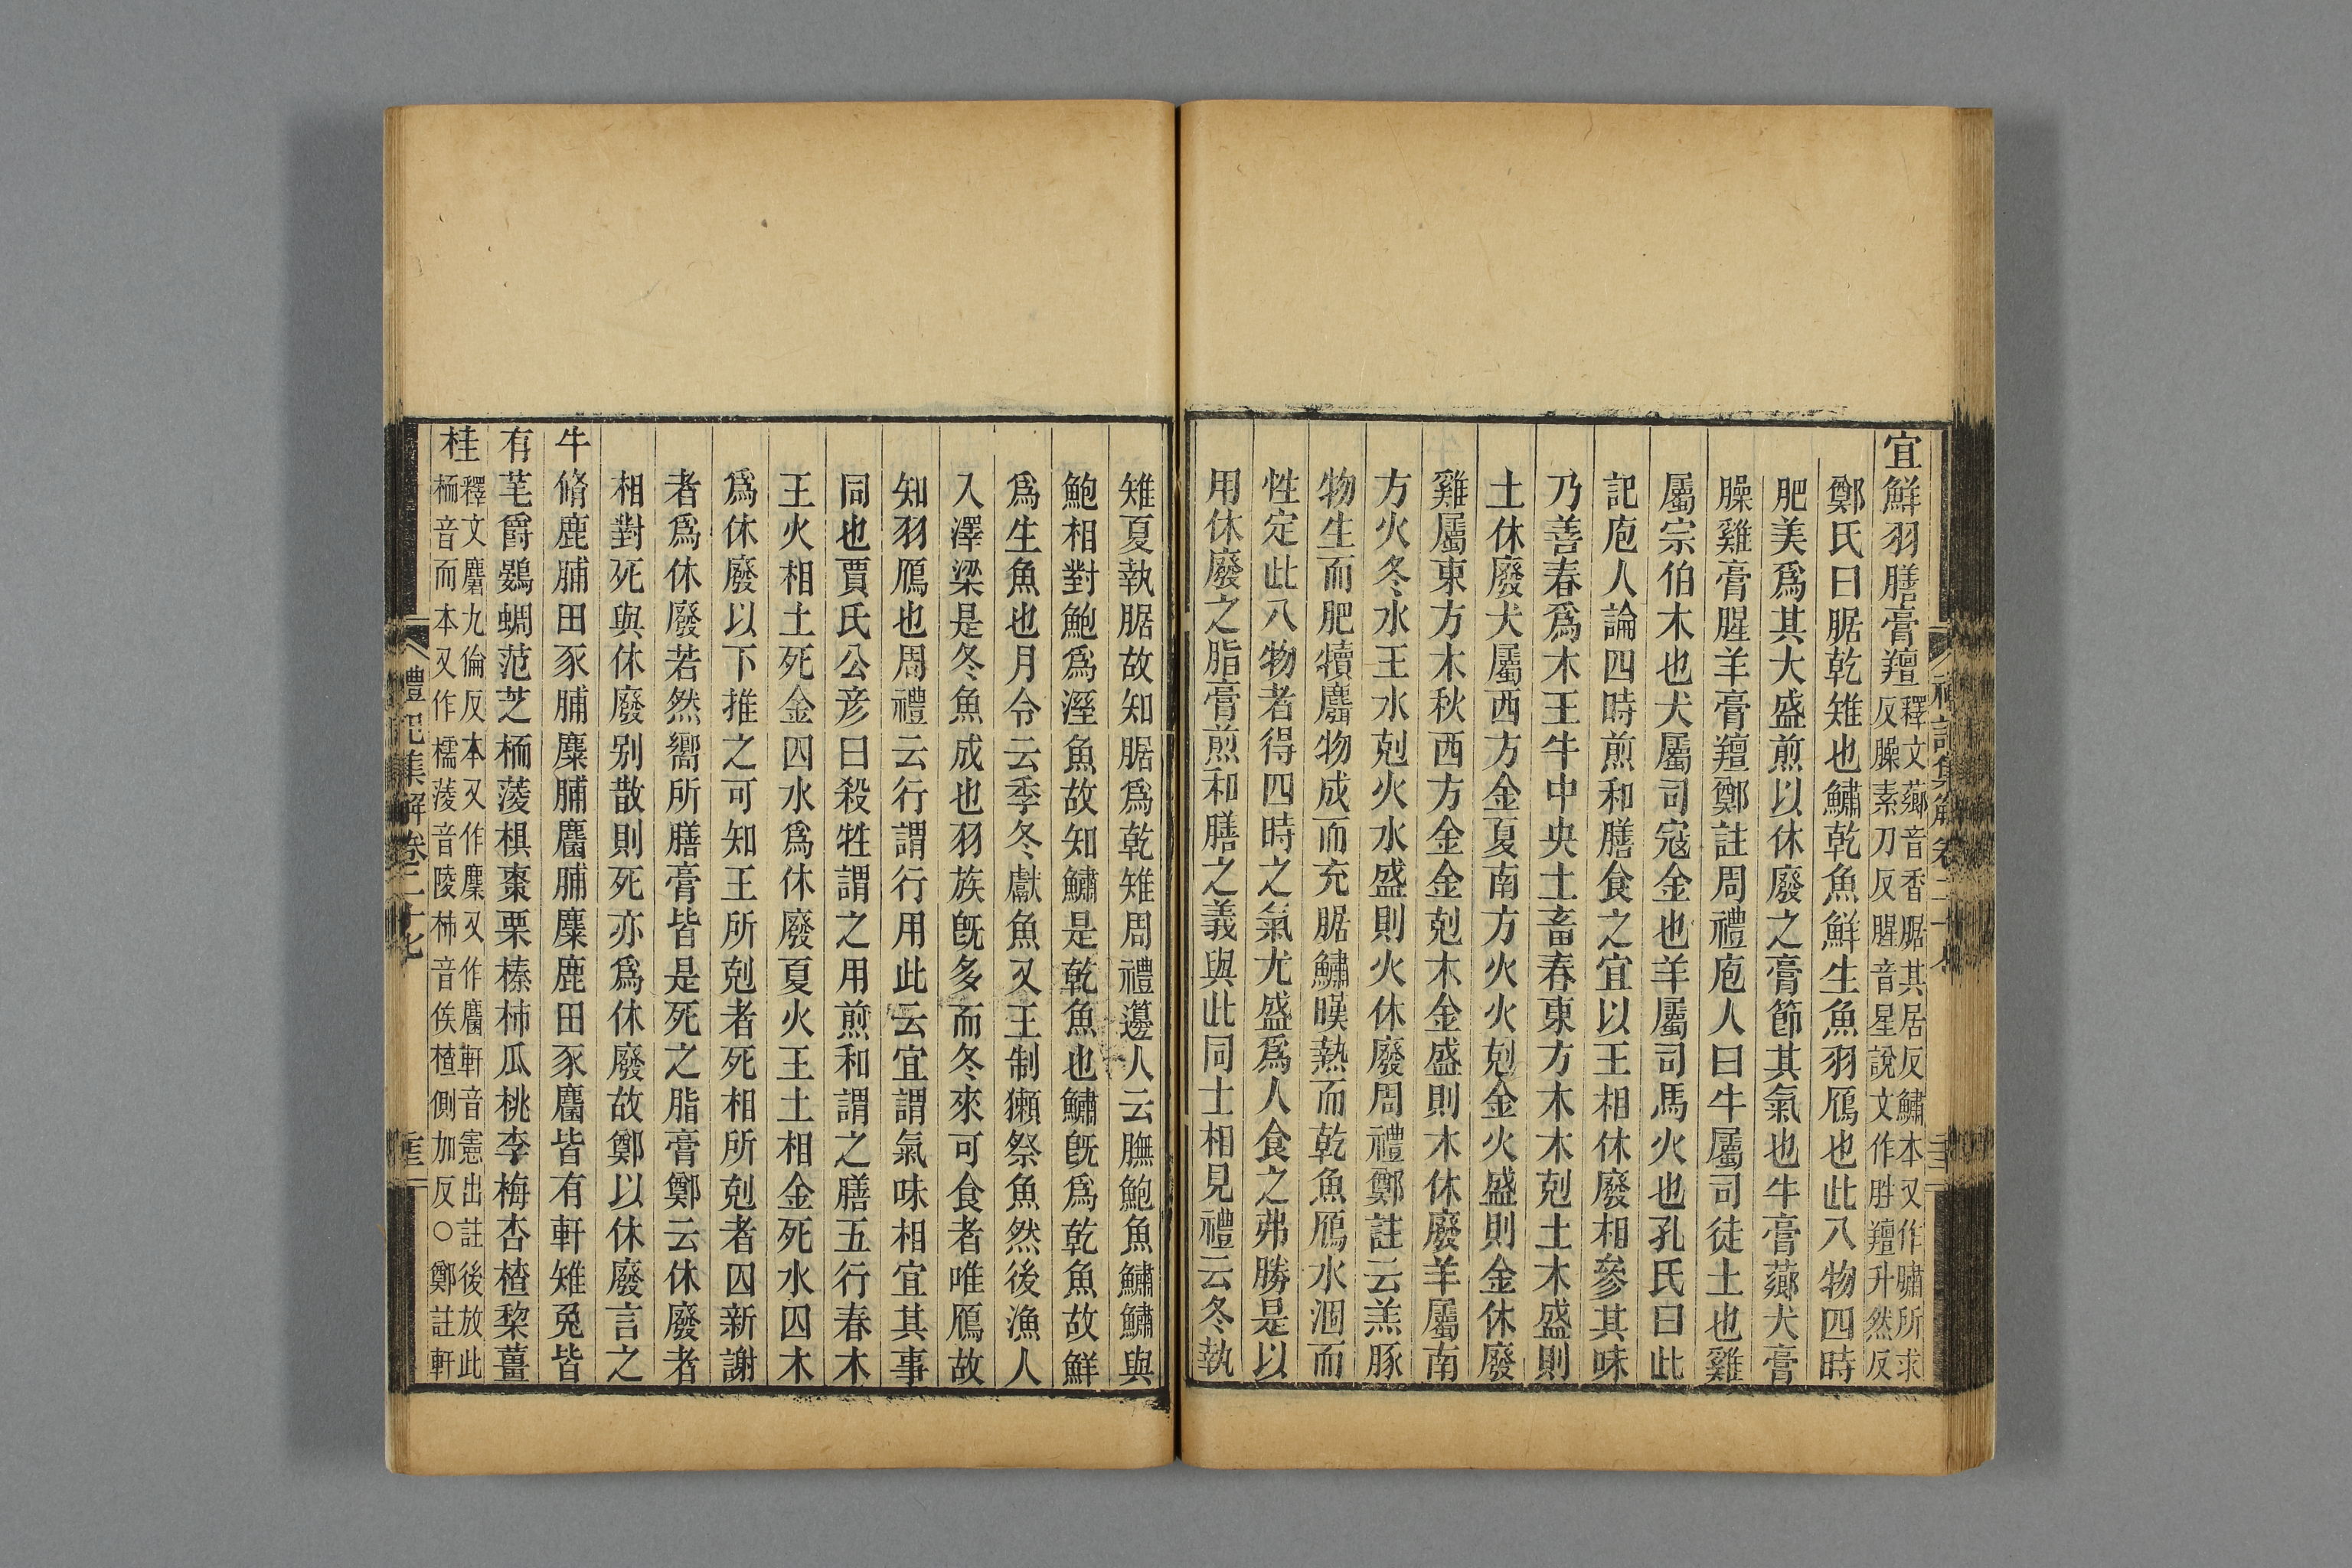 宜鮮羽膳膏羶釋文薌音香腒其居反鱐本又作驌所求
反臊素刀反腥音星說文作胜羶升然反
鄭氏曰腒乾雉也鱐乾魚鮮生魚羽鴈也此八物四時
肥美爲其大盛煎以休廢之膏節其氣也牛膏薌犬膏
臊雞膏腥羊膏羶鄭註周禮庖人曰牛屬司徒土也雞
屬宗伯木也犬屬司寇金也羊屬司馬火也孔氏曰此
記庖人論四時煎和膳食之宜以王相休廢相參其味
乃善春爲木王牛中央土畜春東方木木剋土木盛則
土休廢犬屬西方金夏南方火火剋金火盛則金休廢
雞屬東方木秋西方金金剋木金盛則木休廢羊屬南
方火冬水王水剋火水盛則火休廢周禮鄭註云羔豚
物生而肥犢麛物成而充腒鱐暵熱而乾魚鴈水涸而
性定此八物者得四時之氣尤盛爲人食之弗勝是以
用休廢之脂膏煎和膳之義與此同士相見禮云冬執
雉夏執腒故知腒爲乾雉周禮籩人云膴鮑魚鱐鱐與
鮑相對鮑爲溼魚故知鱐是乾魚也鱐旣爲乾魚故鮮
爲生魚也月令云季冬獻魚又王制獺祭魚然後漁人
入澤梁是冬魚成也羽族旣多而冬來可食者唯鴈故
知羽鴈也周禮云行謂行用此云宜謂氣味相宜其事
同也賈氏公彥曰殺牲謂之用煎和謂之膳五行春木
王火相土死金囚水爲休廢夏火王土相金死水囚木
爲休廢以下推之可知王所剋者死相所剋者囚新謝
者爲休廢若然嚮所膳膏皆是死之脂膏鄭云休廢者
相對死與休廢别散則死亦爲休廢故鄭以休廢言之
牛脩鹿脯田豕脯麋脯麕脯麋鹿田豕麕皆有軒雉兎皆
有芼爵鷃蜩范芝栭蔆椇棗栗榛柿瓜桃李梅杏楂棃薑
桂釋文麕九倫反本又作麇又作麕軒音憲出註後放此
栭音而本又作檽蔆音陵柿音俟楂側加反○鄭註軒
禮記集解卷二十七